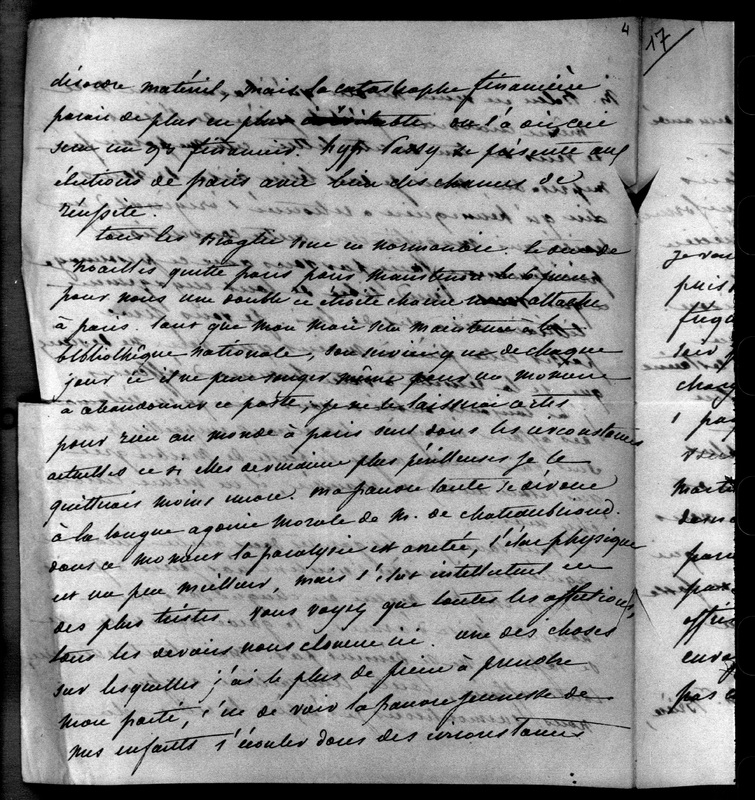 4
17
désordre matériel, mais la catastrophe financière
parait de plus en plus inévitable
sera un financier. hyp. Passy se présente aux
élections de paris avec bien des chances de
réussite.
tous les en normandie le duc de
Noailles quitte paris pour maintenon le 6 juin
pour nous une double et étroite chaine nous attache
à paris. tant que mon mari sera maintenu à la
bibliothêque nationale, son service y est de chaque
jour et il ne peut songer même pour un moment
à abandonner ce poste, je ne le laisserai certes
pour rien au monde à paris seul dans les circonstances
actuelles et si elles devenaient plus périlleuses je le
quitterais moins encore. ma pauvre tante se dévoue
à la longue agonie morale de M. de chateaubriand.
dans ce moment la paralysie est arretée, l'état physique
est un peu meilleur, mais l'état intellectuel est
des plus tristes. vous voyez que toutes les affections,
tous les devoirs nous clouent ici. une des choses
sur lesquelles j'ai le plus de peine à prendre
mon parti, c'est de voir la pauvre jeunesse de
mes enfants s'écouler dans des circonstances
je vous
puis
soir
chag
pas